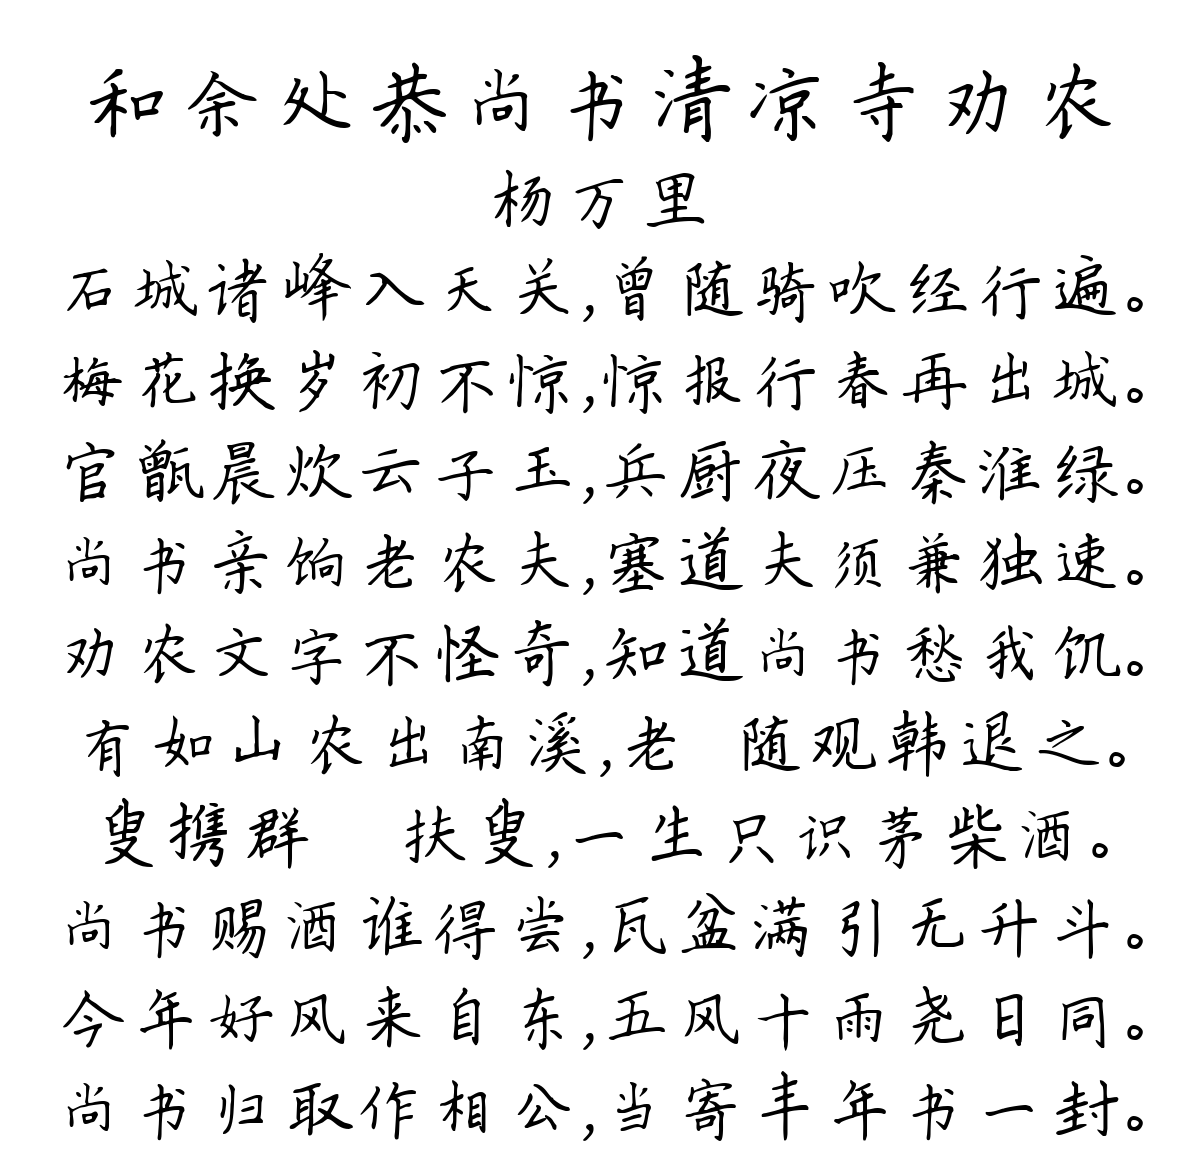 和余处恭尚书清凉寺劝农
杨万里
石城诸峰入天关,曾随骑吹经行遍。
梅花换岁初不惊,惊报行春再出城。
官甑晨炊云子玉,兵厨夜压秦淮绿。
尚书亲饷老农夫,塞道夫须兼独速。
劝农文字不怪奇,知道尚书愁我饥。
有如山农出南溪,老 随观韩退之。
叟携群 扶叟,一生只识茅柴酒。
尚书赐酒谁得尝,瓦盆满引无升斗。
今年好风来自东,五风十雨尧日同。
尚书归取作相公,当寄丰年书一封。